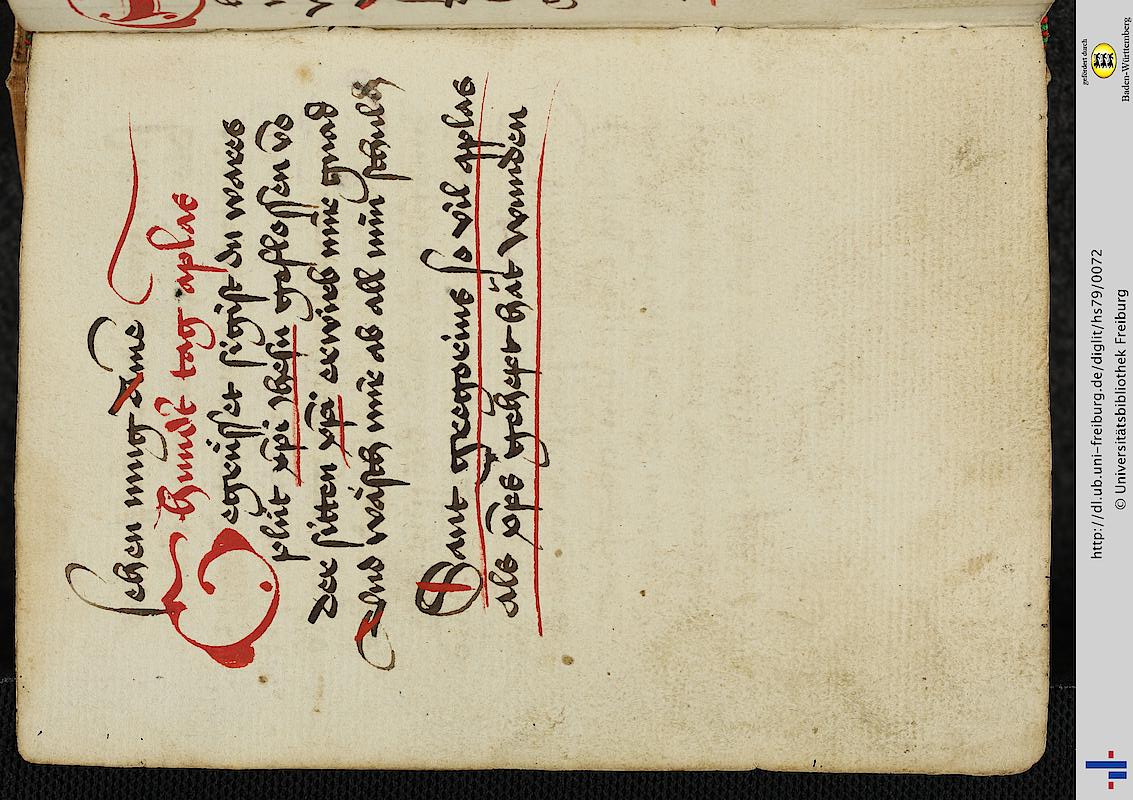 sehen mug Amē
Hundt tag aplas
Gegrüsset sigist du wares
plůt xp̄i Jhesu geflossen vō
der sitten xp̄i erwirb mir gnad
Und wäsch mir ab all min schuld
Sant gregorius so vil applas
als xp̄s gehept hät wunden
gefördert durch
Baden-Württemberg
http://dl.ub.uni-freiburg.de/diglit/hs79/0072
© Universitätsbibliothek Freiburg